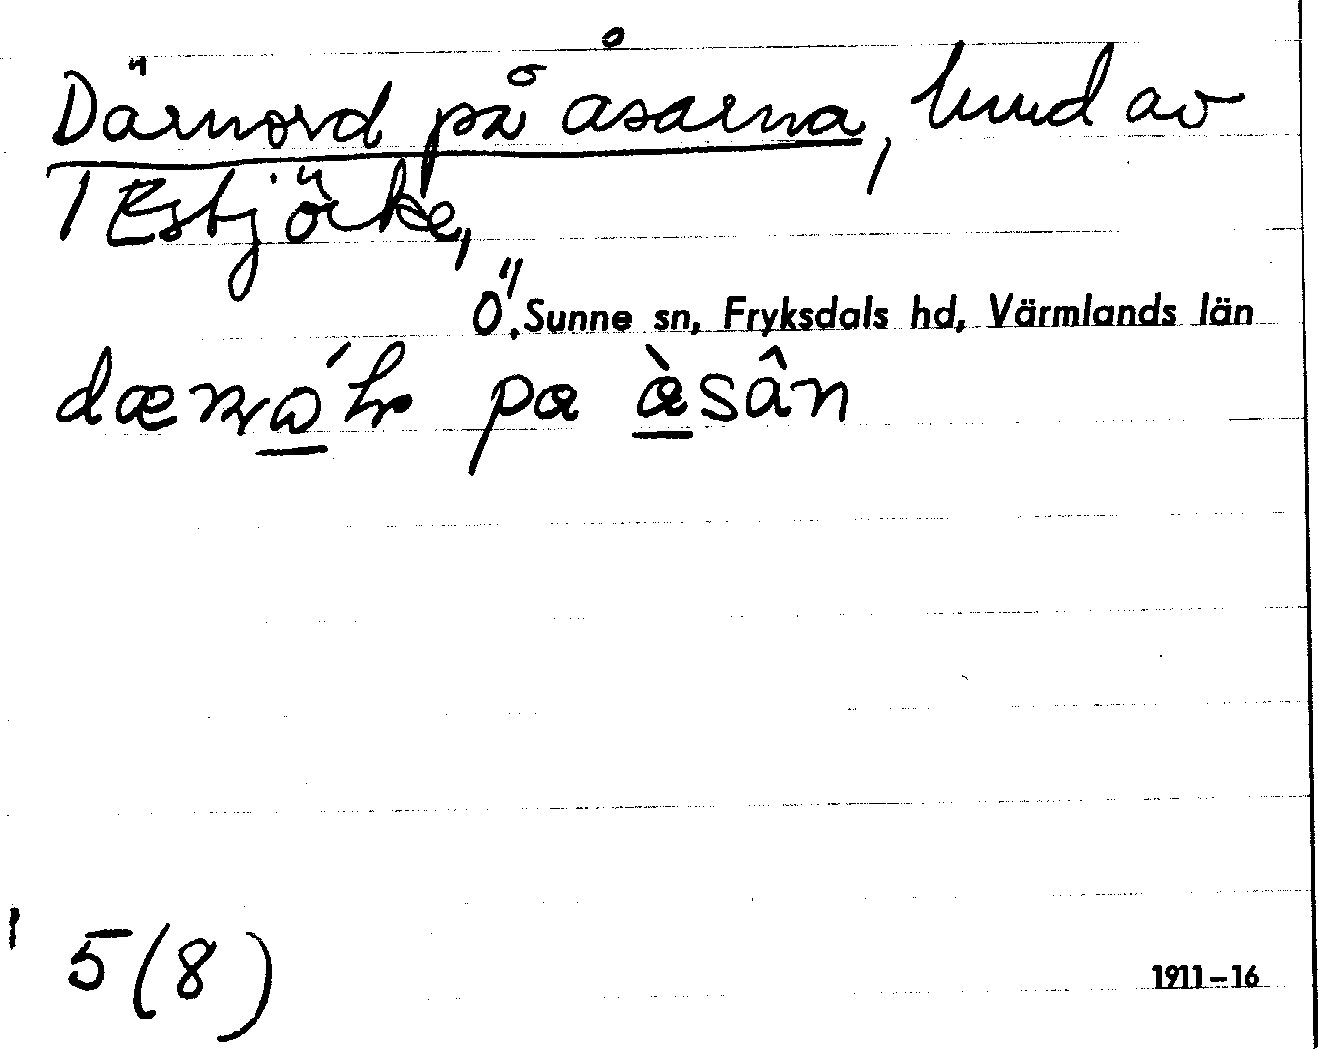 Därnord på åsarna, hmd av
1 Esbjörke,
Ö, Sunne sn, Fryksdals hd, Värmlands län
på àsân
5(8)
1911–16